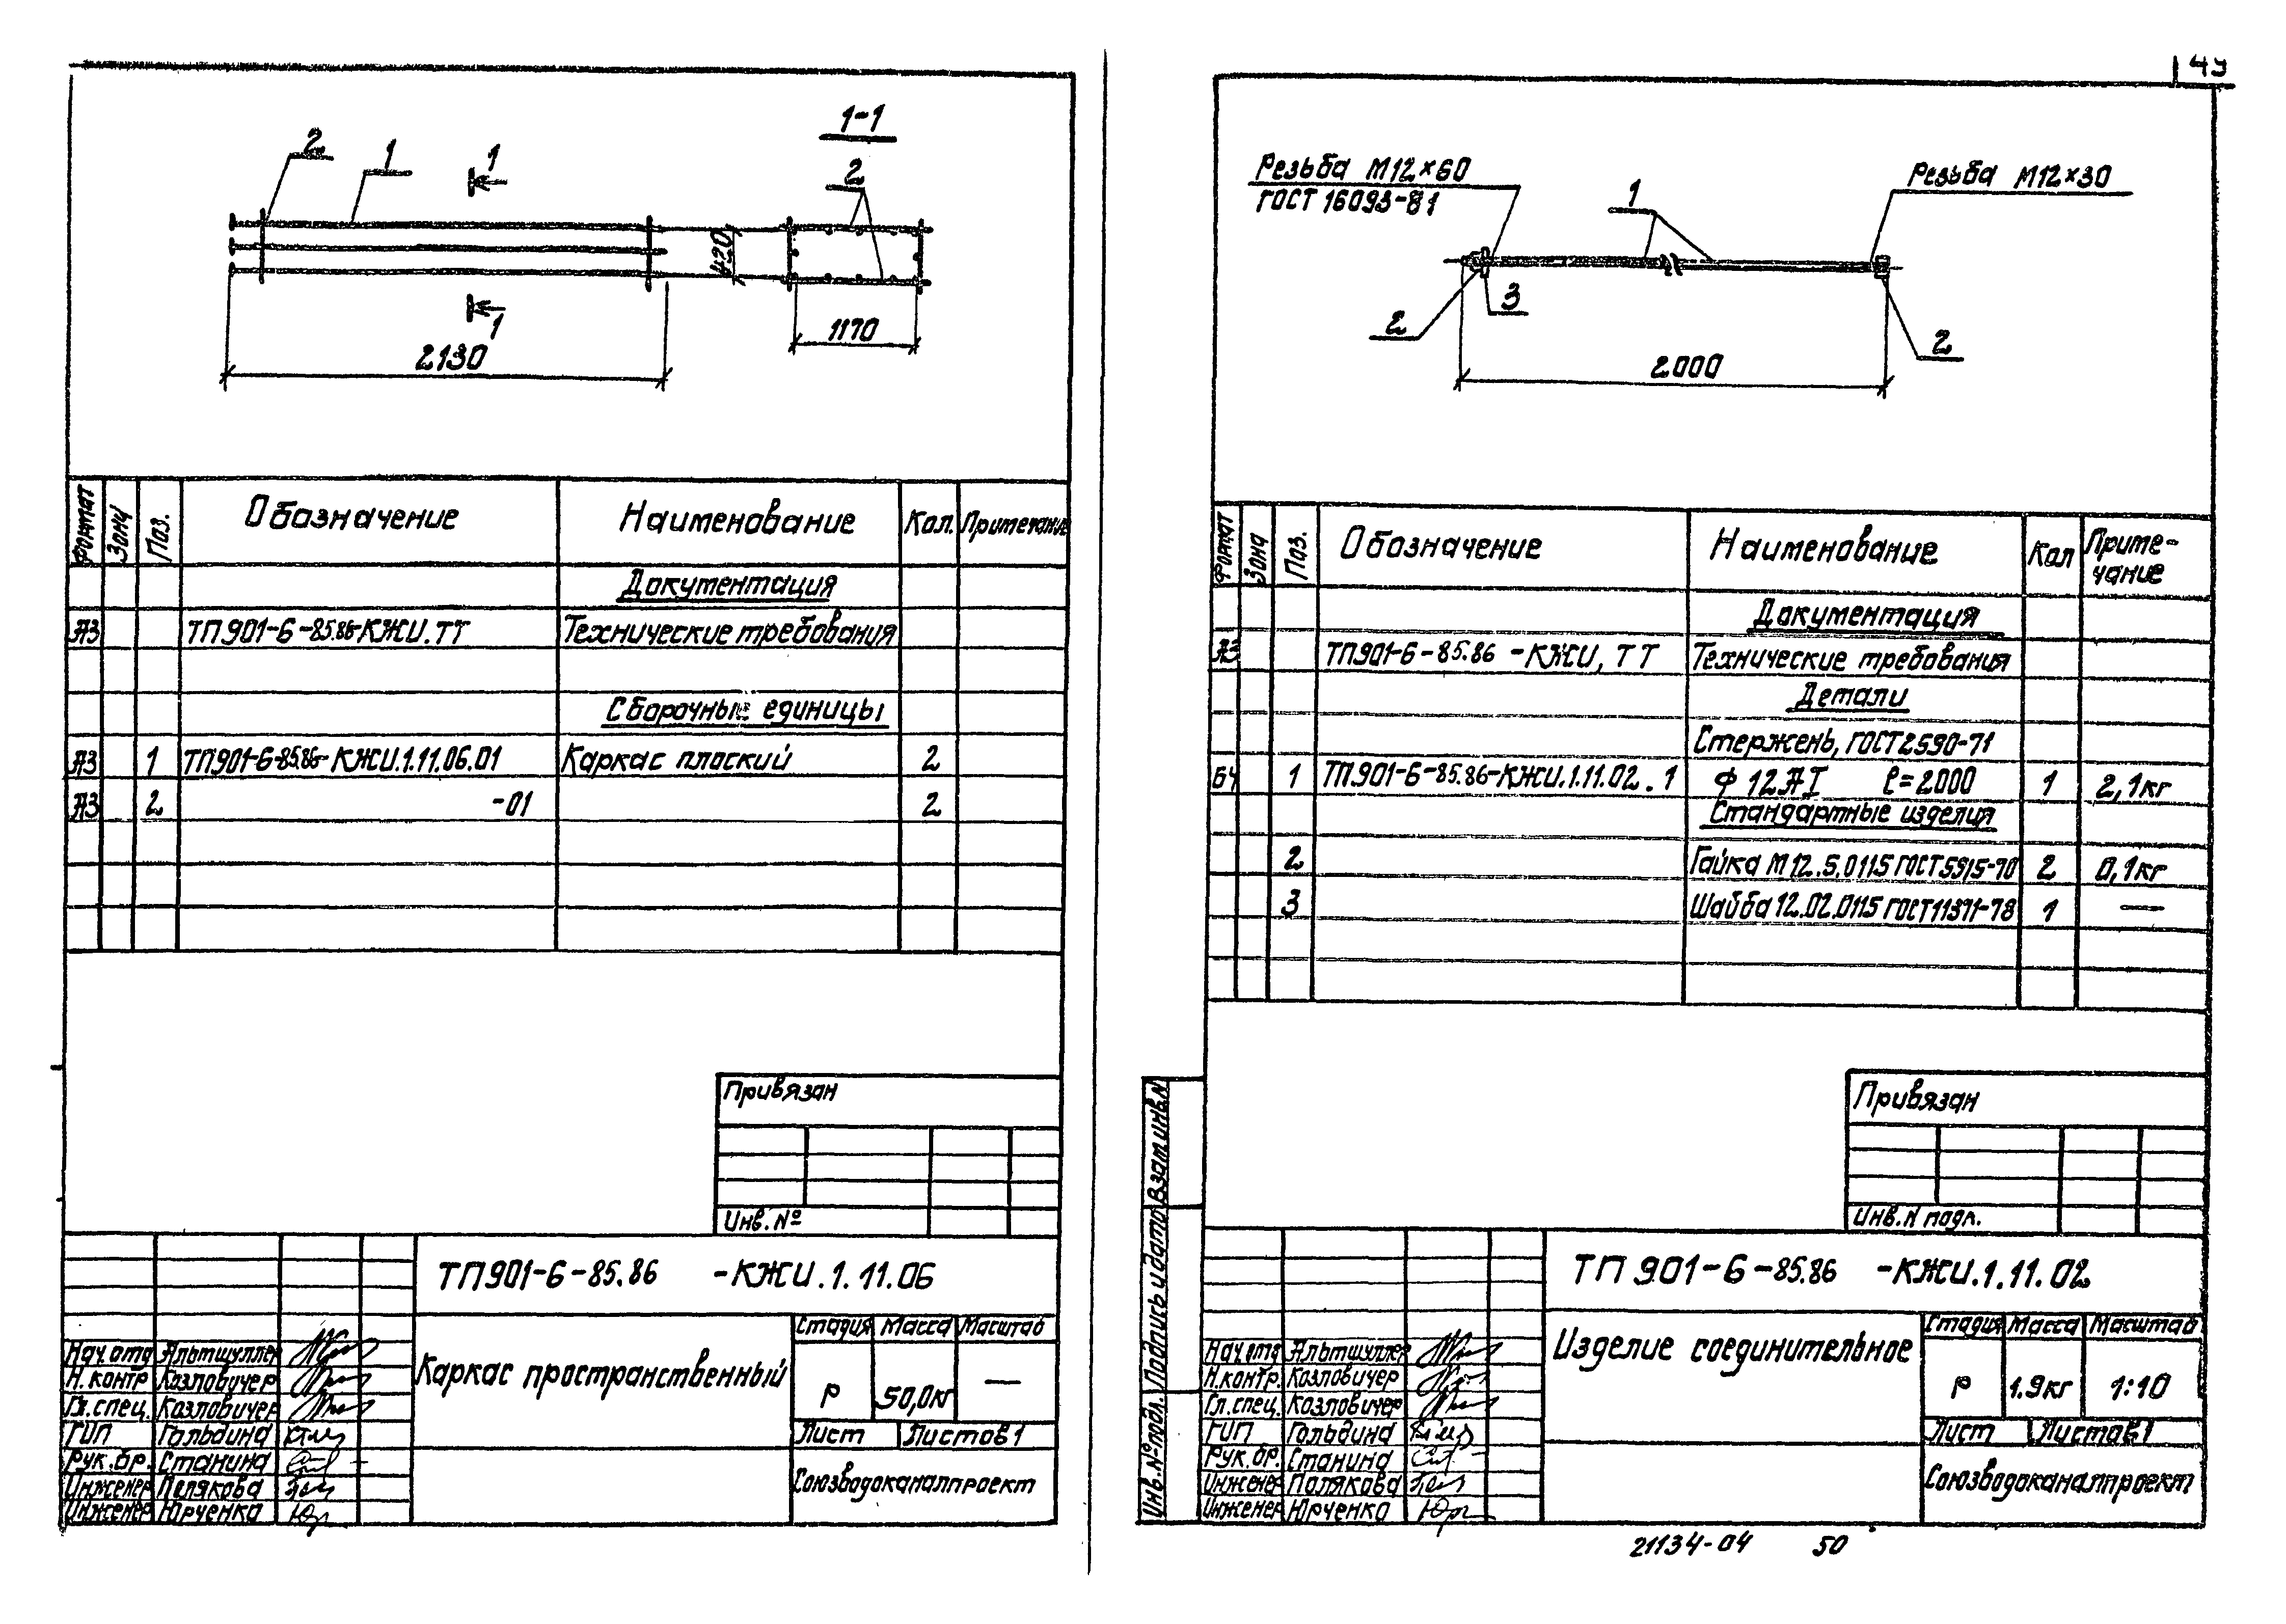 49
2
1
1
1-1
2
420
1
1170
2130
Формат Зону Поз. Обозначение Наименование Кол. Примечание
Документация
А3 ТП901-6-85.86-КЖИ.ТТ Технические требования
Сборочные единицы
А3 1 ТП901-6-85.86-КЖИ.1.11.06.01 Каркас плоский 2
А3 2 -01 2
Привязан
Инв.№
ТП901-6-85.86 -КЖИ.1.11.06
Стадия Масса Масштаб
Нач.отд Альтшуллер
Н.контр Козловичер
Каркас пространственный
Р 50,0кг —
Гл.спец. Козловичер
ГИП Гольдина
Лист Листов1
Рук.бр. Станина
Инженер Полякова
Союзводоканалпроект
Инженер Юрченко
Резьба М12×60
ГОСТ 16093-81
1
Резьба М12×30
3
2
2
2000
Формат Зона Поз. Обозначение Наименование Кол Приме-
чание
Документация
А3 ТП901-6-85.86 -КЖИ, ТТ Технические требования
Детали
Стержень, ГОСТ2590-71
БЧ 1 ТП.901-6-85.86-КЖИ.1.11.02.1 Ф 12АI ℓ=2000 1 2,1кг
Стандартные изделия
2 Гайка М12.5.0115 ГОСТ5915-70 2 0,1кг
3 Шайба 12.02.0115 ГОСТ11371-78 1 —
Привязан
Инв.N подл.
Взам.инв.N
Подпись и дата
Инв.№подл.
ТП 901-6-85.86 -КЖИ.1.11.02
Стадия Масса Масштаб
Нач.отд Альтшуллер
Изделие соединительное
Н.контр. Козловичер
Р 1.9кг 1:10
Гл.спец. Козловичер
ГИП Гольдина
Лист Листов1
Рук.бр. Станина
Инженер Полякова
Союзводоканалпроект
Инженер Юрченко
21134-04 50